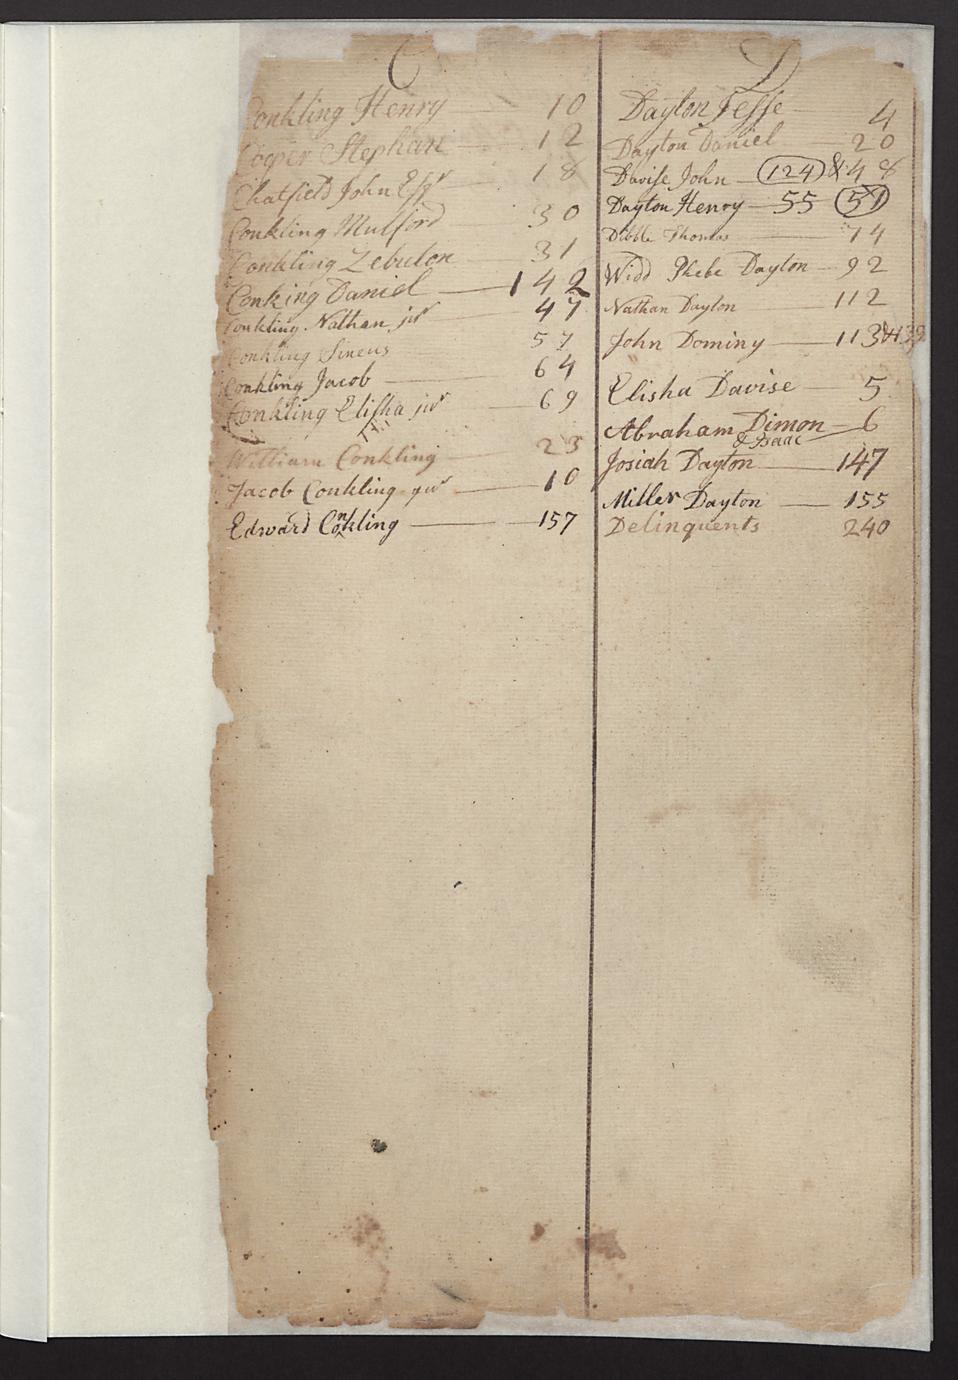 C
Conkling Henry 10
Cooper Stephan 12
Chatfield John Esqr 18
Conkling Mulford 30
Conkling Zebulon 31
Conking Daniel 142
Conkling Nathan jur 47
Conkling Sineus 57
Conkling Jacob 64
Conkling Elisha jur 69
William Conkling 23
Jacob Conkling jur 10
Edward Conkling 157
D
Dayton Jesse 4
Dayton Daniel 20
Davise John 124 & 48
Dayton Henry 55 51
Dibble Thomas 14
Widd Phebe Dayton 92
Nathan Dayton 112
John Dominy 113 & 139
Elisha Davise 5
Abraham Dimon 6
& Isaac
Josiah Dayton 147
Miller Dayton 155
Delinquents 240